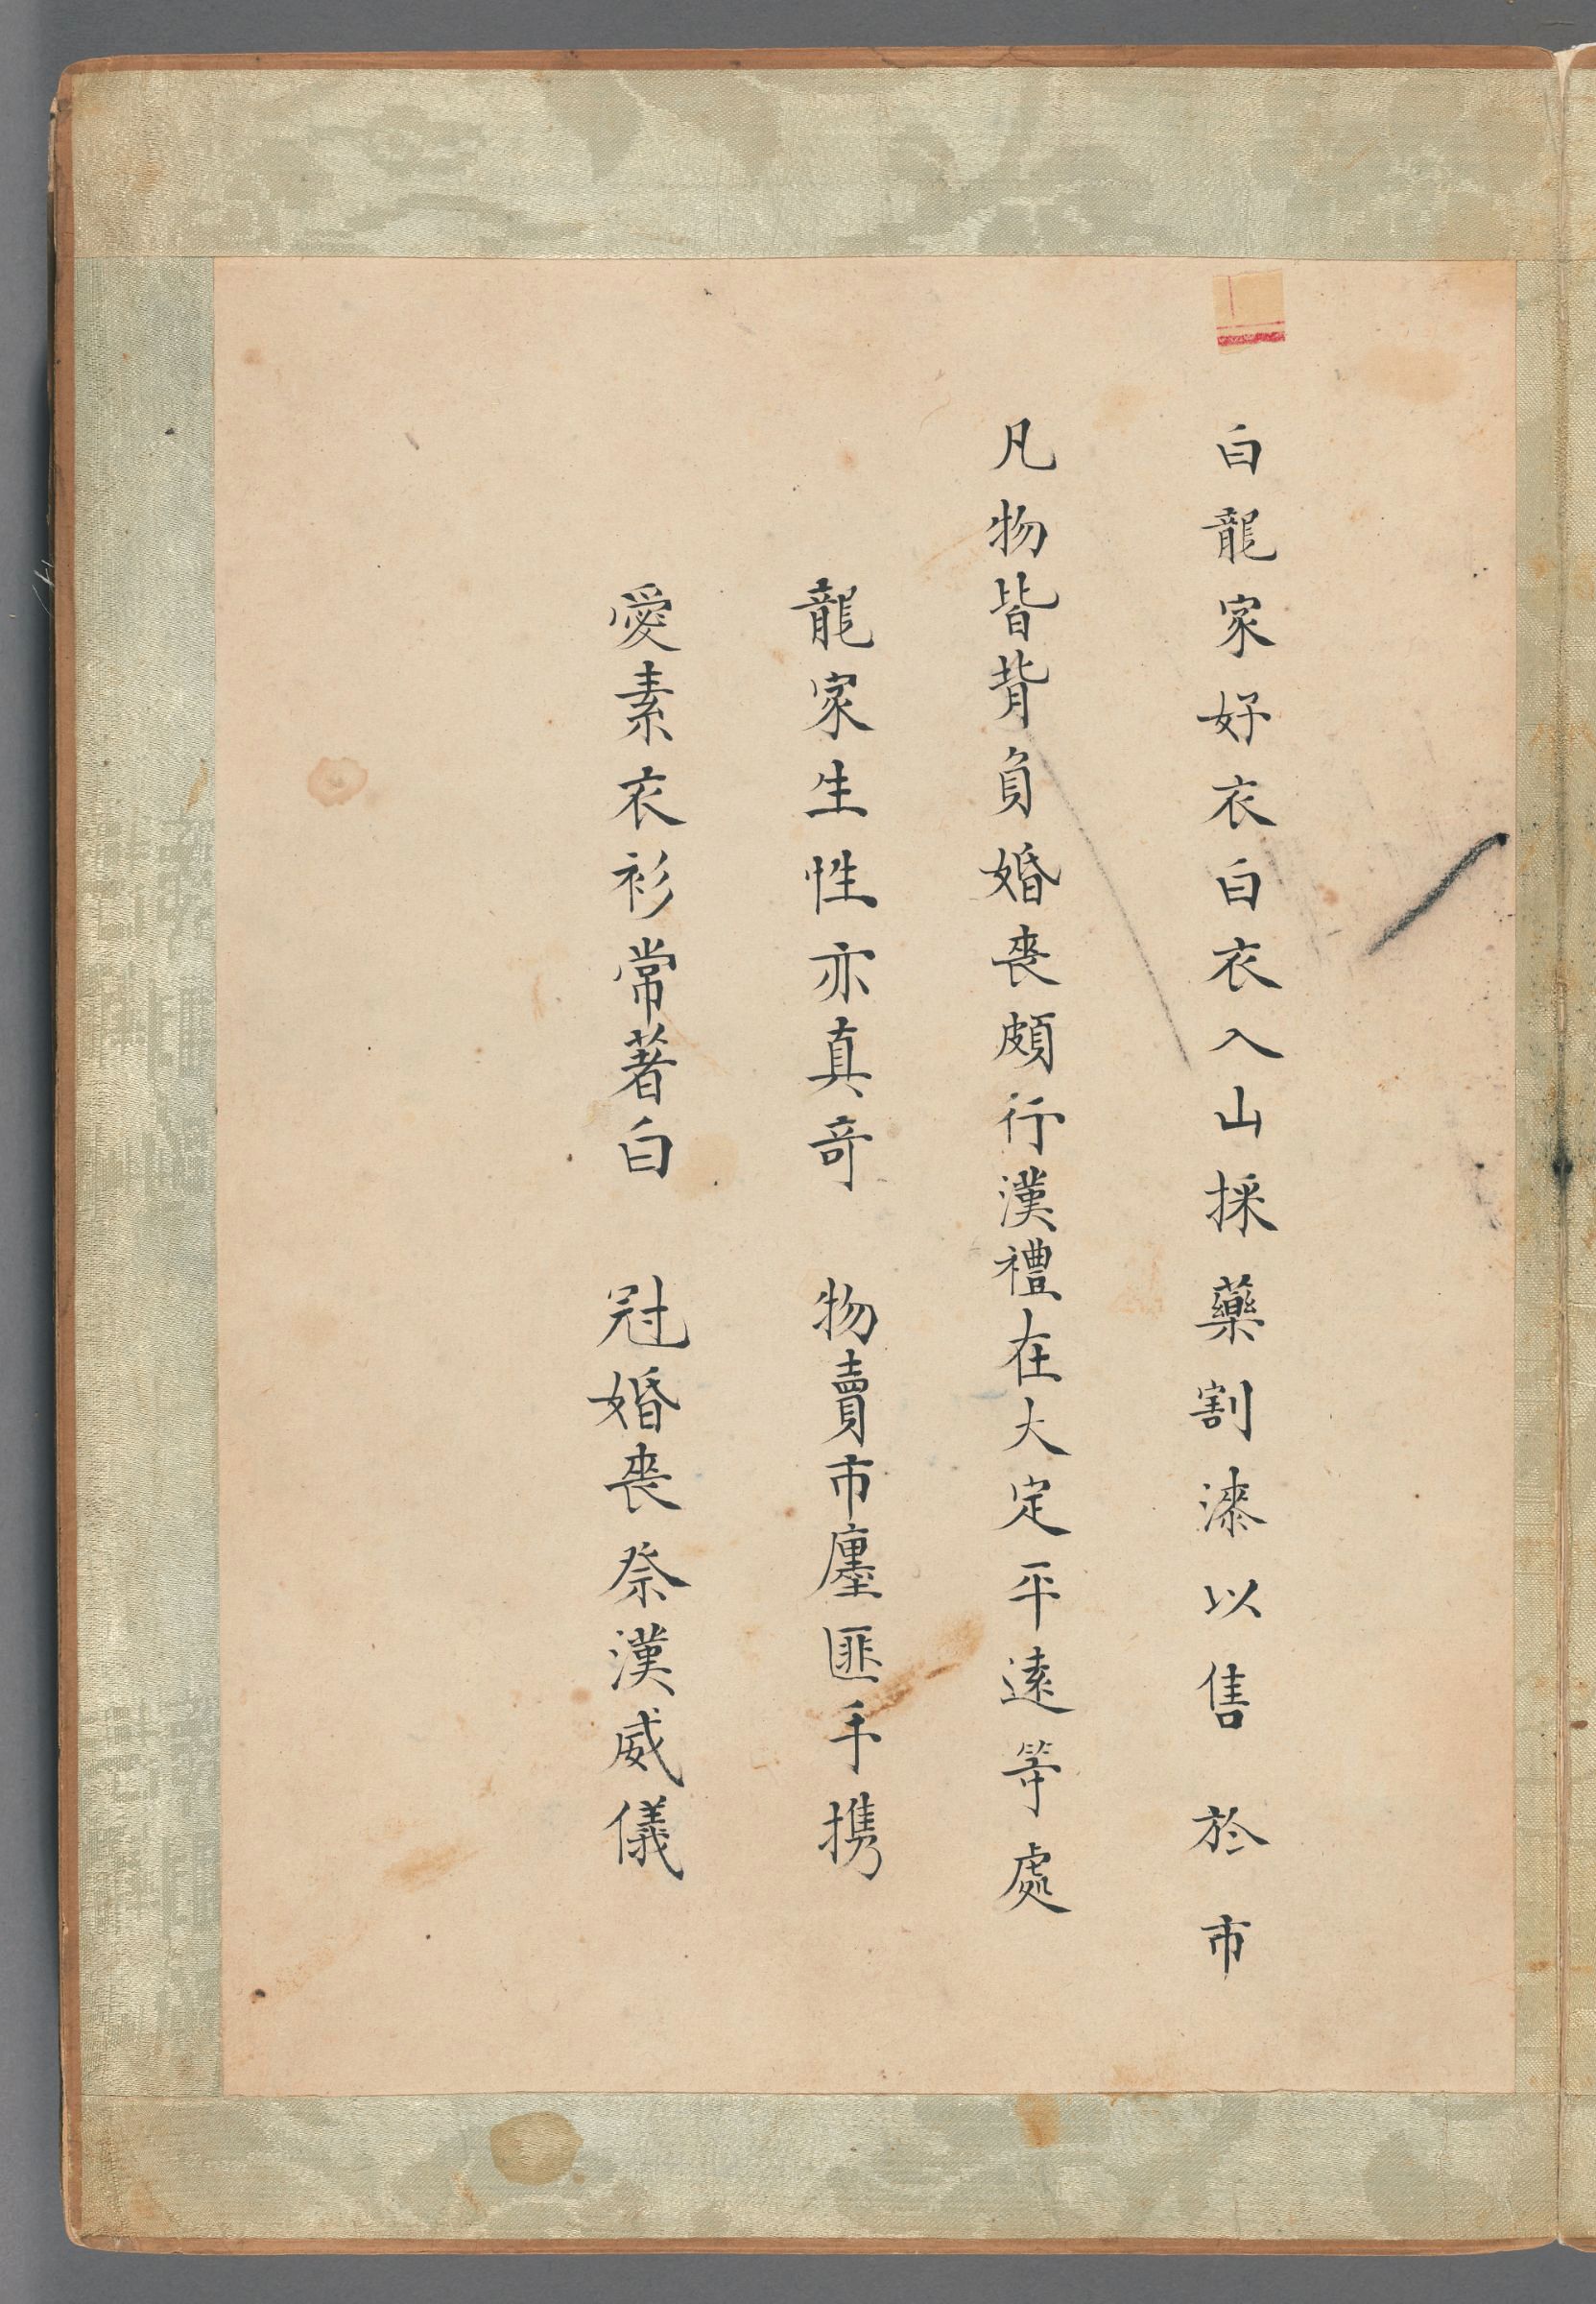 白龍家好衣白衣入山採藥割漆以售於市
凡物皆背負婚喪頗行漢禮在大定平遠等處
龍家生性亦真奇　物賣市廛匪手携
愛素衣衫常著白　冠婚喪祭漢威儀